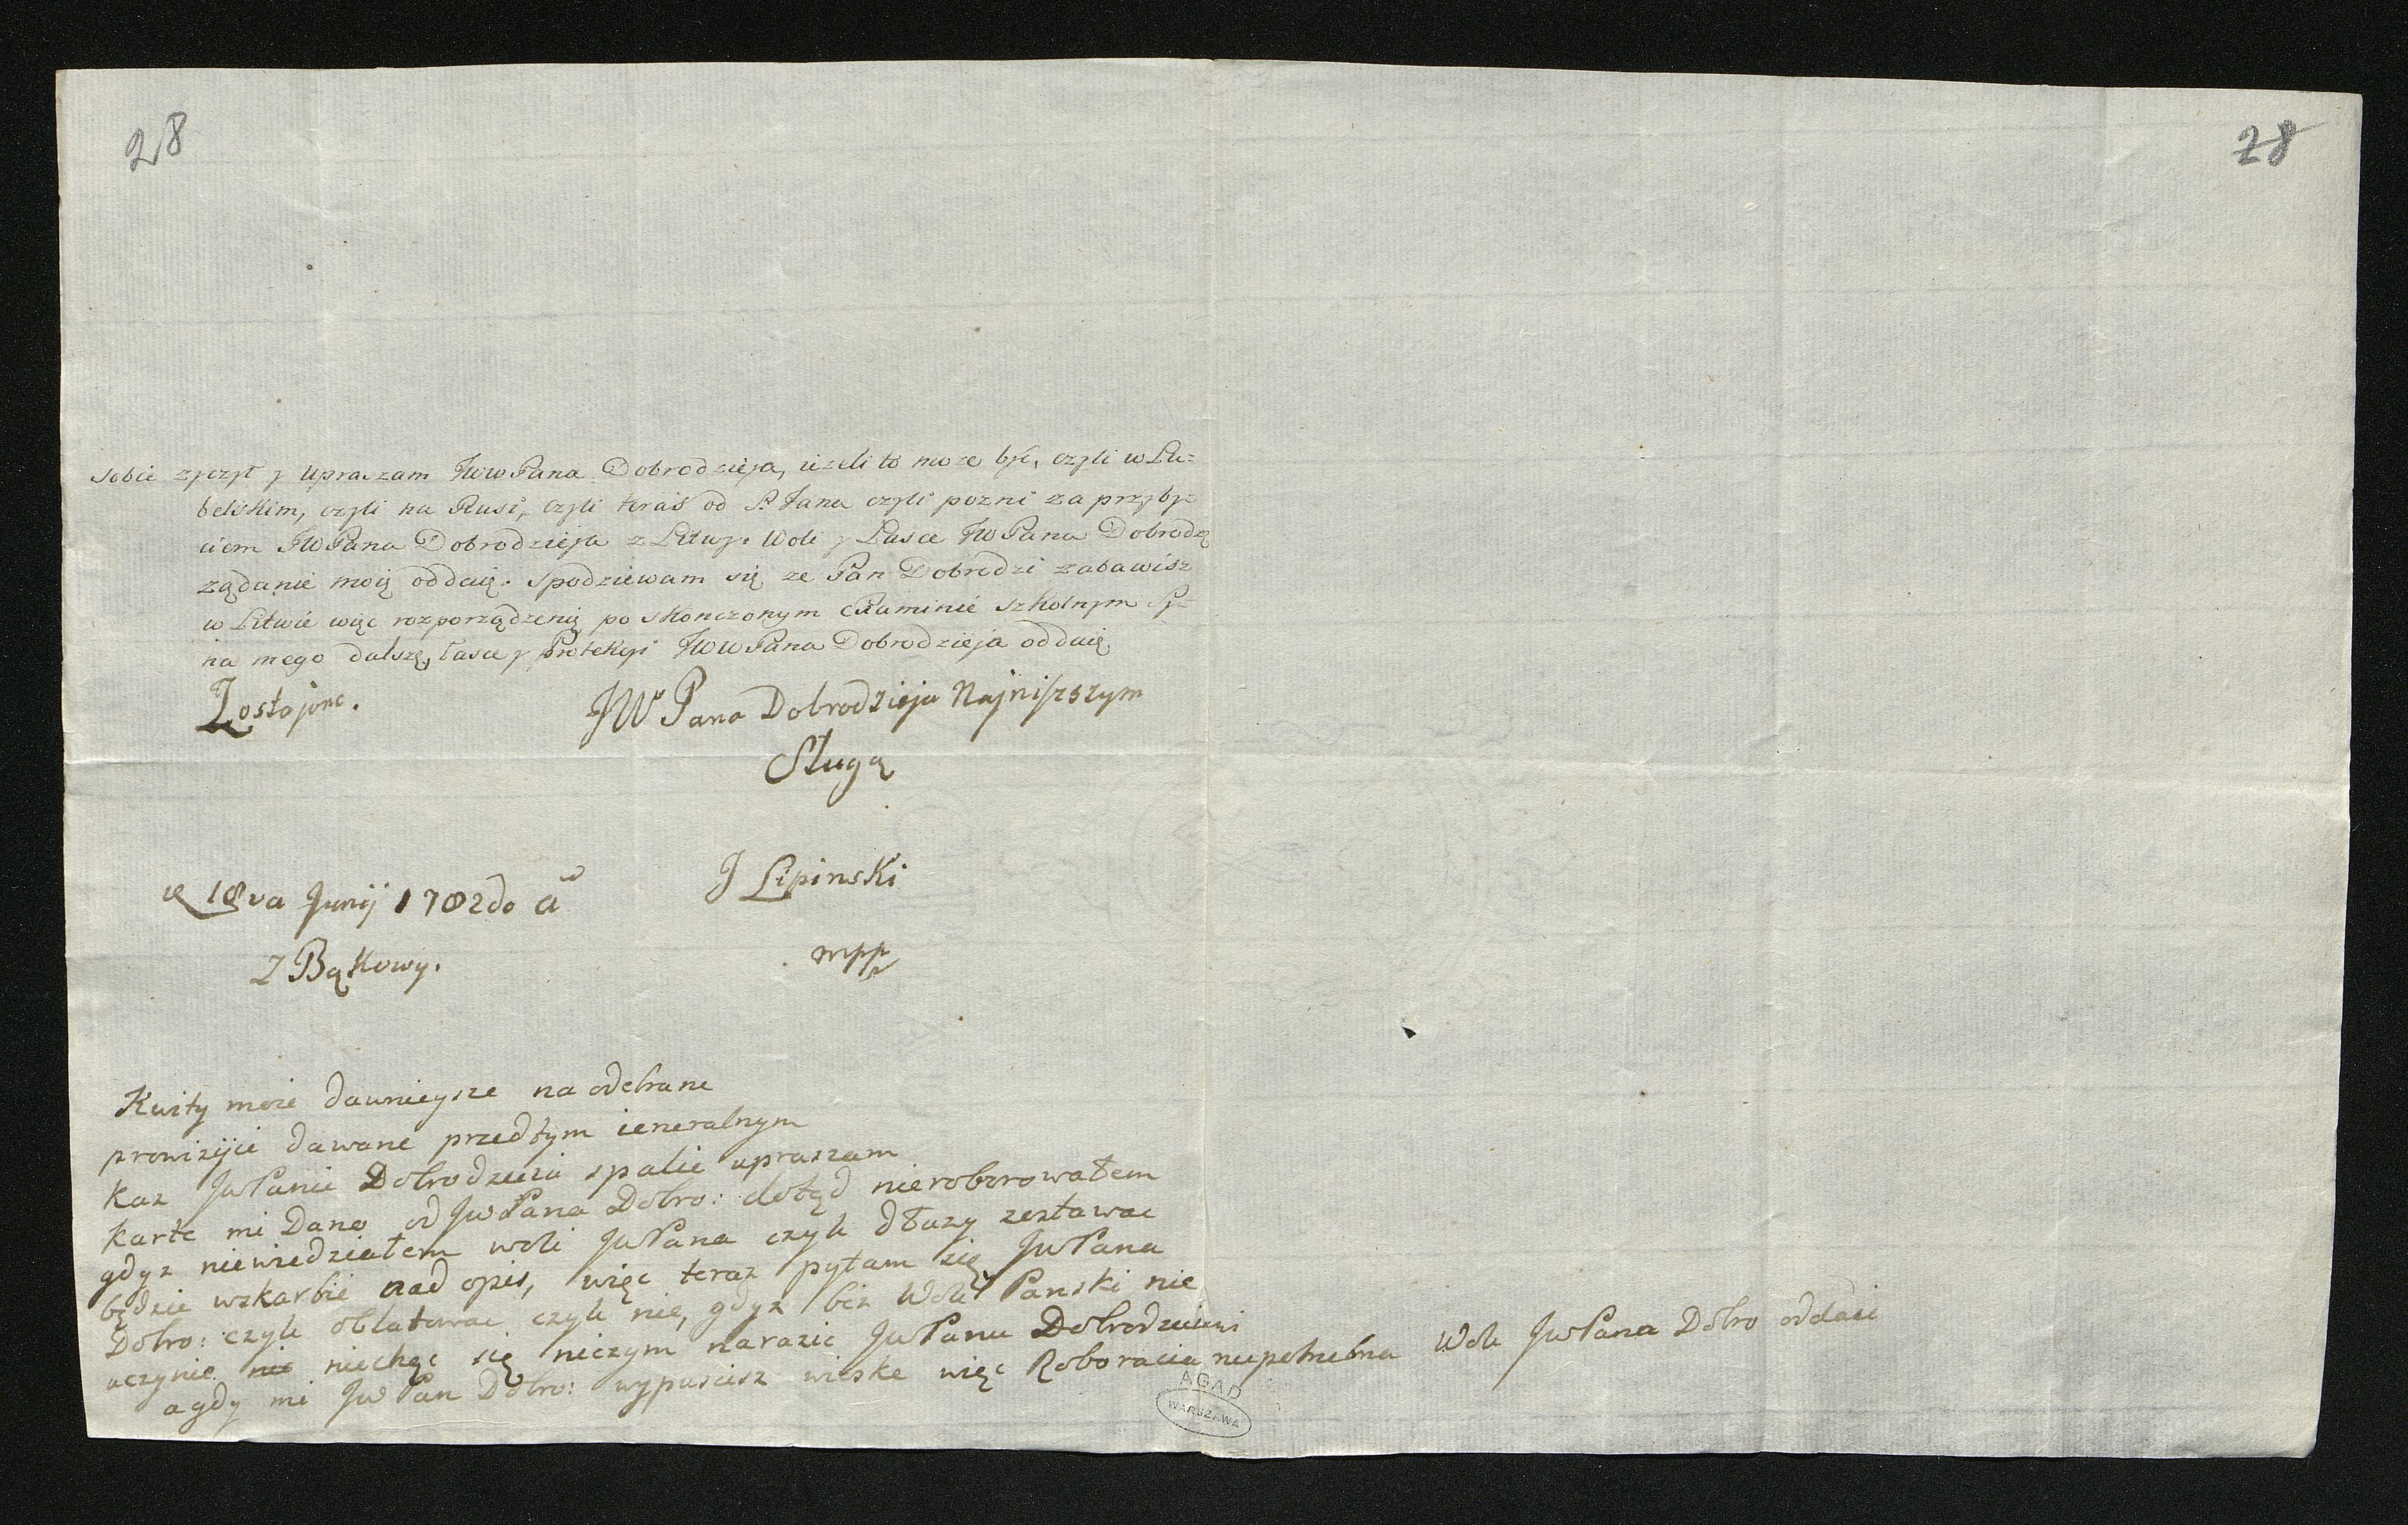 28
28
sobie zyczył y upraszam JWW Pana Dobrodzieja, ieżeli to może być, czyli w Lu=
belskim, czyli na Rusi, czyli teraś od S. Jana czyli pozni za przyby=
ciem JW Pana Dobrodzieja z Litwy. Woli y Łasce JW Pana Dobrodz
ządanie moię oddaię. Spodziewam się ze Pan Dobrodzi zabawisz
w Litwie więc rozporządzenię po skonczonym examinie szkolnym Sy=
na mego dalszę, łasce y Protekcyi JWW Pana Dobrodzieja oddaię
Zostajonc.
JW Pana Dobrodzieja Najniszszym
Sługą
J Lipinski
mpp
18va Junij 1782do a
Z Bąkowy.
Kwity moie dawnieysze na odebrane
prowizyie dawane przedtym ieneralnym
kaz JwPanie Dobrodzieiu spalić upraszam
karte mi Dano od JwPana Dobro: dotąd nieroborowałem
gdyz niewiedziałem woli JwPana czyli dłuzy zestawac
będzie wskarbie nad opis, więc teraz pytam się JwPana
Dobro: czyli oblatowac czyli nie, gdyz bez Woli Panski nie
uczynie nie niechęc się niczym narazic JwPanu Dobrodzieiowi
a gdy mi Jw Pan Dobro: wypuscisz wioske więc Roboracia niepotrzebna Woli JwPana Dobro oddaie
AGAD
WARSZAWA